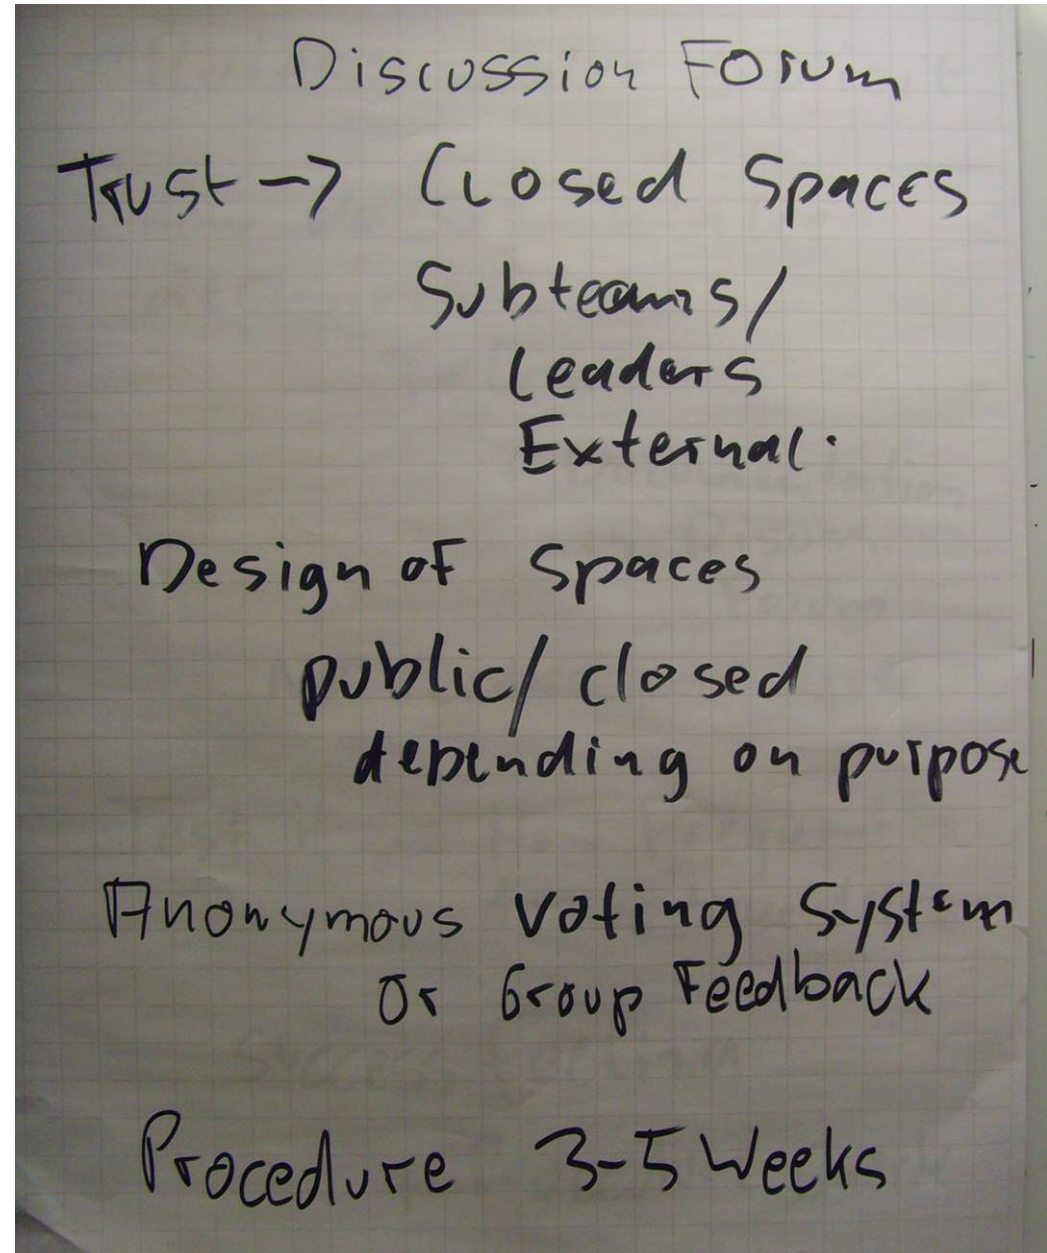 Discussion Forum
Trust -> Closed Spaces
Subteams/
Leaders
External.
Design of Spaces
public/closed
depending on purpose
Anonymous voting System
Or Group Feedback
Procedure 3-5 Weeks